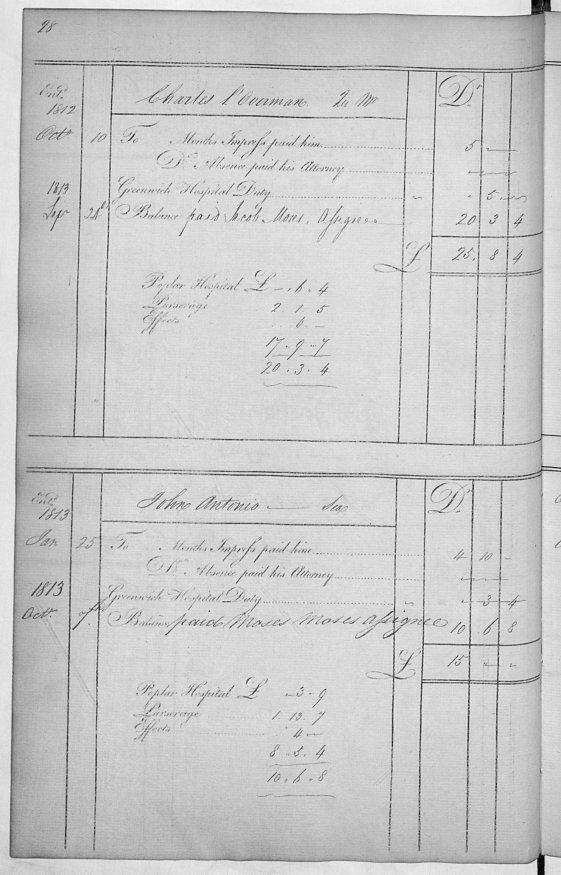 28
Ent.
1812
Charles l'Overman Qr Mr
Dr
Octr 10 To Months Impress paid him 5 — —
Do Absence paid his Attorney — — —
1813 Greenwich Hospital Duty " 5 —
Sep 24th Balance paid Jacob Moses, Assignee 20 3 4
£ 25 . 8 4
Poplar Hospital £ — . 6 . 4
Purserage 2 . 1 . 5
Effects 6 —
17 . 9 . 7
20 . 3 . 4
Ent.
1813
John Antonio — Sea
Dr
Jan 25 To Months Impress paid him 4 10 —
Do Absence paid his Attorney — — —
1813 Greenwich Hospital Duty " 3 4
Octr 7th Balance paid Moses Moses assignee 10 6 8
£ 15 — "
Poplar Hospital £ — 3 . 9
Purserage 1 . 13 . 7
Effects 4 —
8 . 5 . 4
10 . 6 . 8